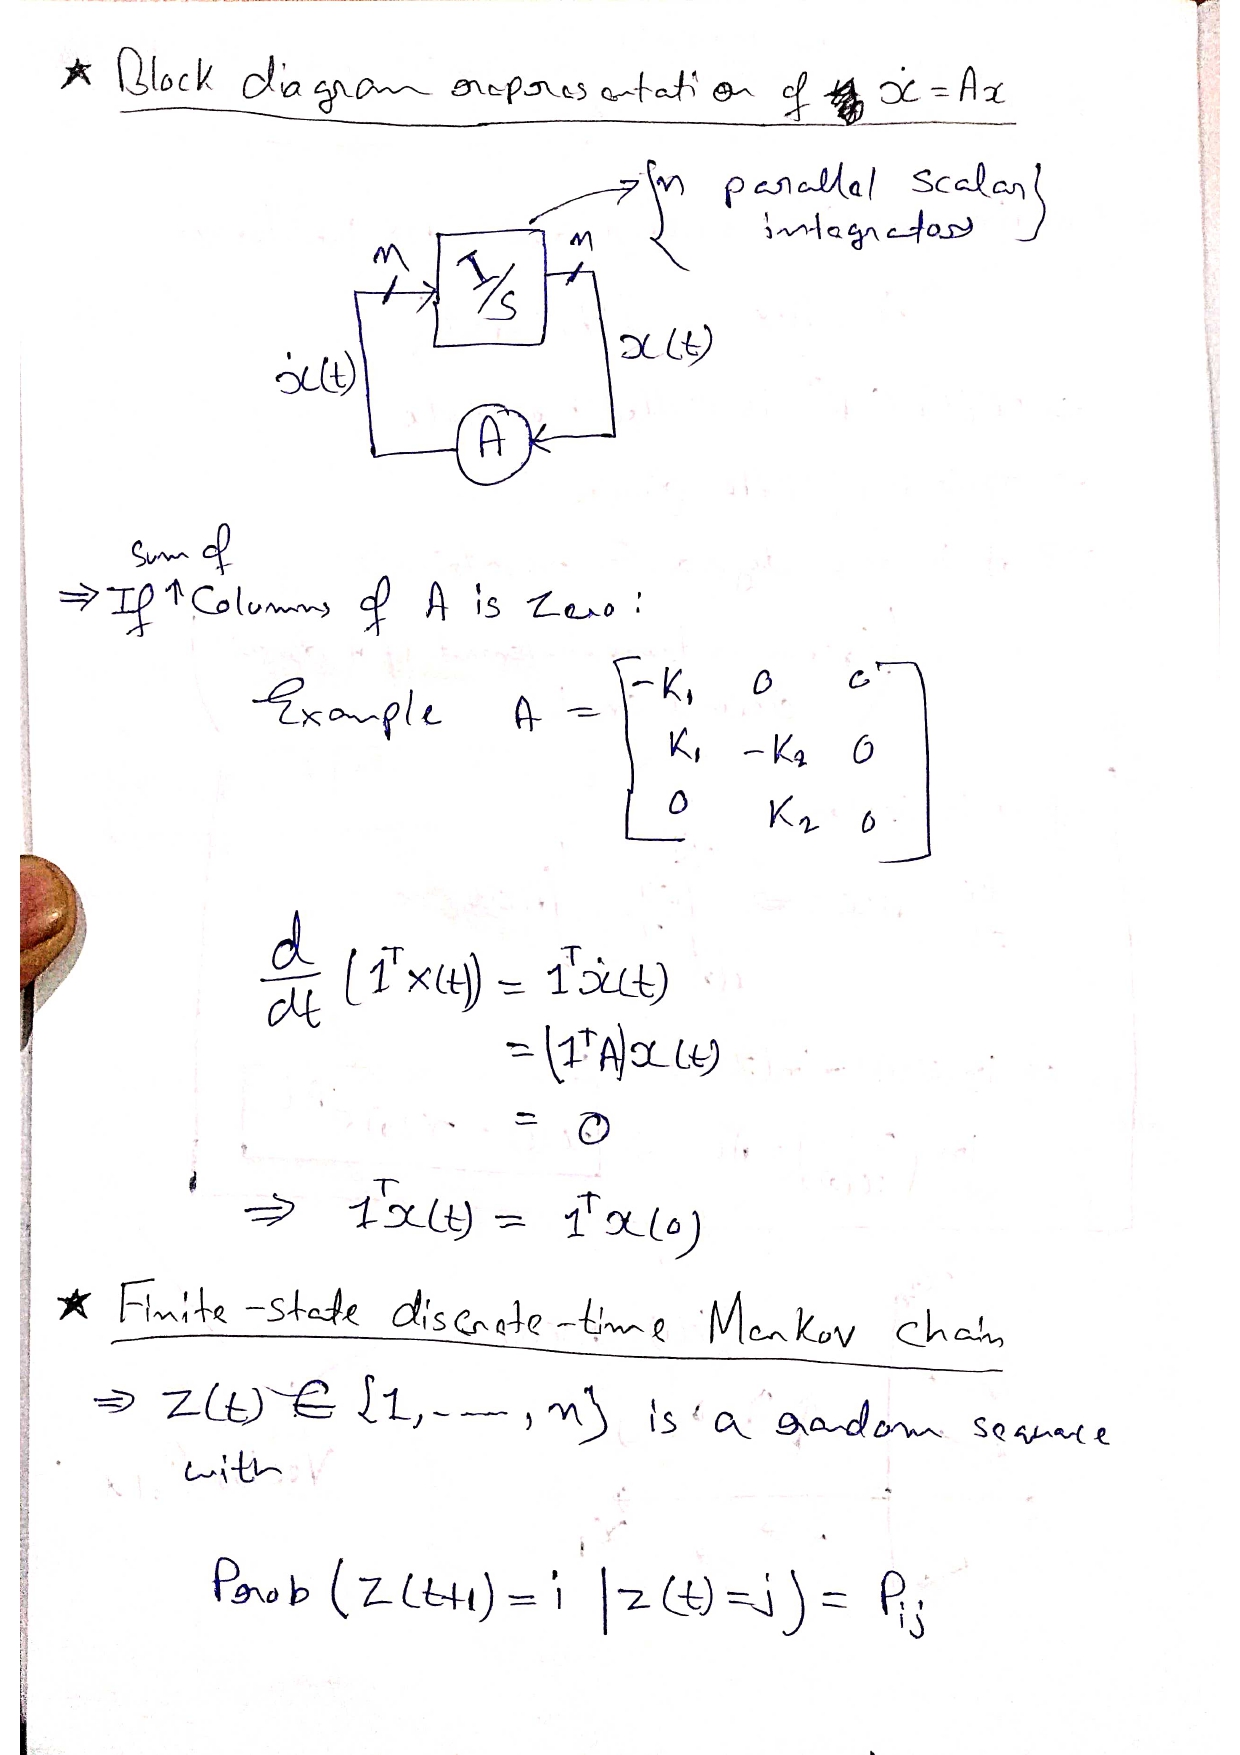 ★ Block diagram representation of ẋ = Ax
{n parallel scalar
integrators}
n
n
I/s
ẋ(t)
x(t)
A
sum of
⇒ If ↑ Columns of A is zero :
Example A = [ -K₁ 0 0
K₁ -K₂ 0
0 K₂ 0 ]
d/dt (1ᵀx(t)) = 1ᵀẋ(t)
= (1ᵀA)x(t)
= 0
⇒ 1ᵀx(t) = 1ᵀx(0)
★ Finite-state discrete-time Markov chain
⇒ z(t) ∈ {1,-----, n} is a random sequence
with
Prob (z(t+1) = i | z(t) = j) = Pᵢⱼ